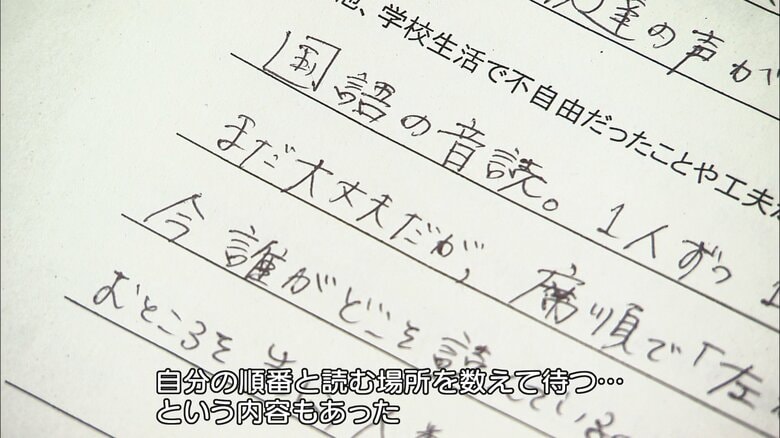 達の声が
他、学校生活で不自由だったことや工夫
国語の音読。1人ずつ1
まだ大丈夫だが、席順で「左
今誰がどこを読んでいるの
むところを
自分の順番と読む場所を数えて待つ…
という内容もあった